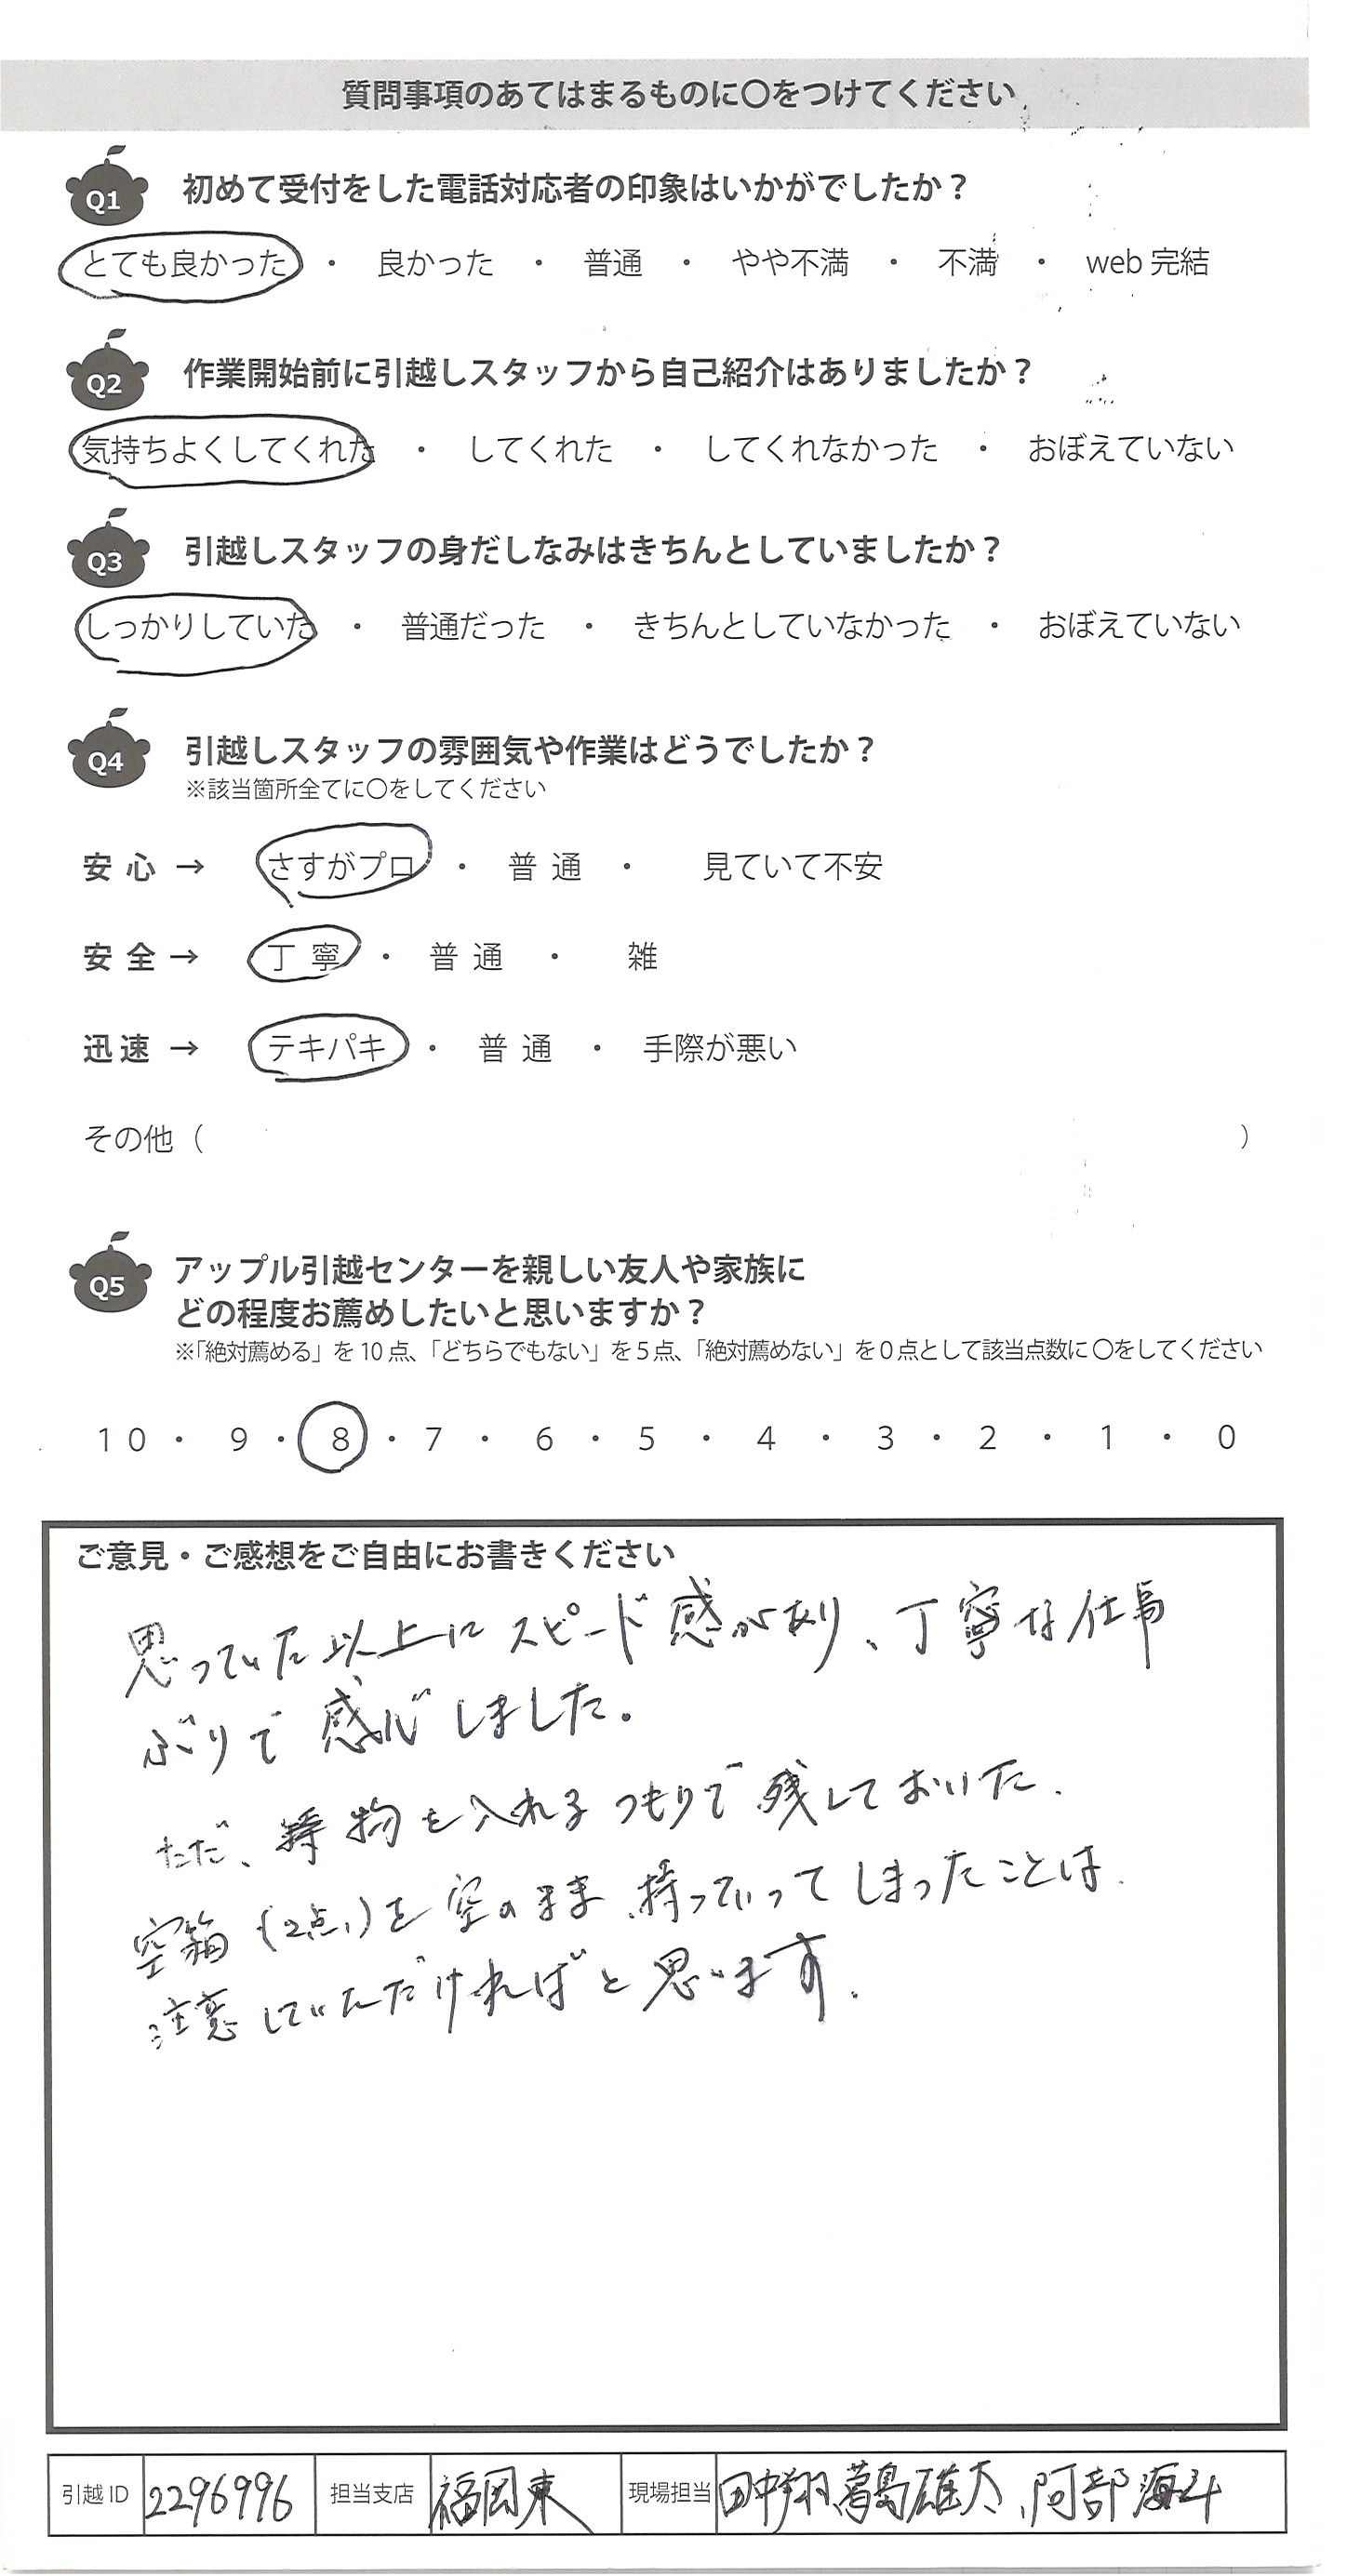 質問事項のあてはまるものに〇をつけてください
Q1 初めて受付をした電話対応者の印象はいかがでしたか？
とても良かった ・ 良かった ・ 普通 ・ やや不満 ・ 不満 ・ web 完結
Q2 作業開始前に引越しスタッフから自己紹介はありましたか？
気持ちよくしてくれた ・ してくれた ・ してくれなかった ・ おぼえていない
Q3 引越しスタッフの身だしなみはきちんとしていましたか？
しっかりしていた ・ 普通だった ・ きちんとしていなかった ・ おぼえていない
Q4 引越しスタッフの雰囲気や作業はどうでしたか？
※該当箇所全てに〇をしてください
安心 → さすがプロ ・ 普通 ・ 見ていて不安
安全 → 丁寧 ・ 普通 ・ 雑
迅速 → テキパキ ・ 普通 ・ 手際が悪い
その他（ ）
Q5 アップル引越センターを親しい友人や家族に
どの程度お薦めしたいと思いますか？
※「絶対薦める」を10点、「どちらでもない」を5点、「絶対薦めない」を0点として該当点数に〇をしてください
10 ・ 9 ・ 8 ・ 7 ・ 6 ・ 5 ・ 4 ・ 3 ・ 2 ・ 1 ・ 0
ご意見・ご感想をご自由にお書きください
思っていた以上にスピード感があり、丁寧な仕事
ぶりで感心しました。
ただ、荷物を入れるつもりで残しておいた
空箱（2点）を空のまま持っていってしまったことは
注意していただければと思います。
引越ID 2296996 担当支店 福岡東 現場担当 田中翔、葛島雄大、阿部海斗